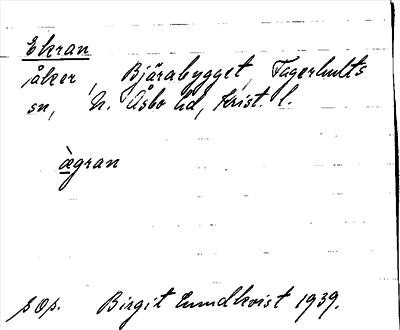 Ekran
åker, Bjärabygget, Fagerhults
sn, N. Åsbo hd, Krist. l.
àgran
sop. Birgit Lundkvist 1939.